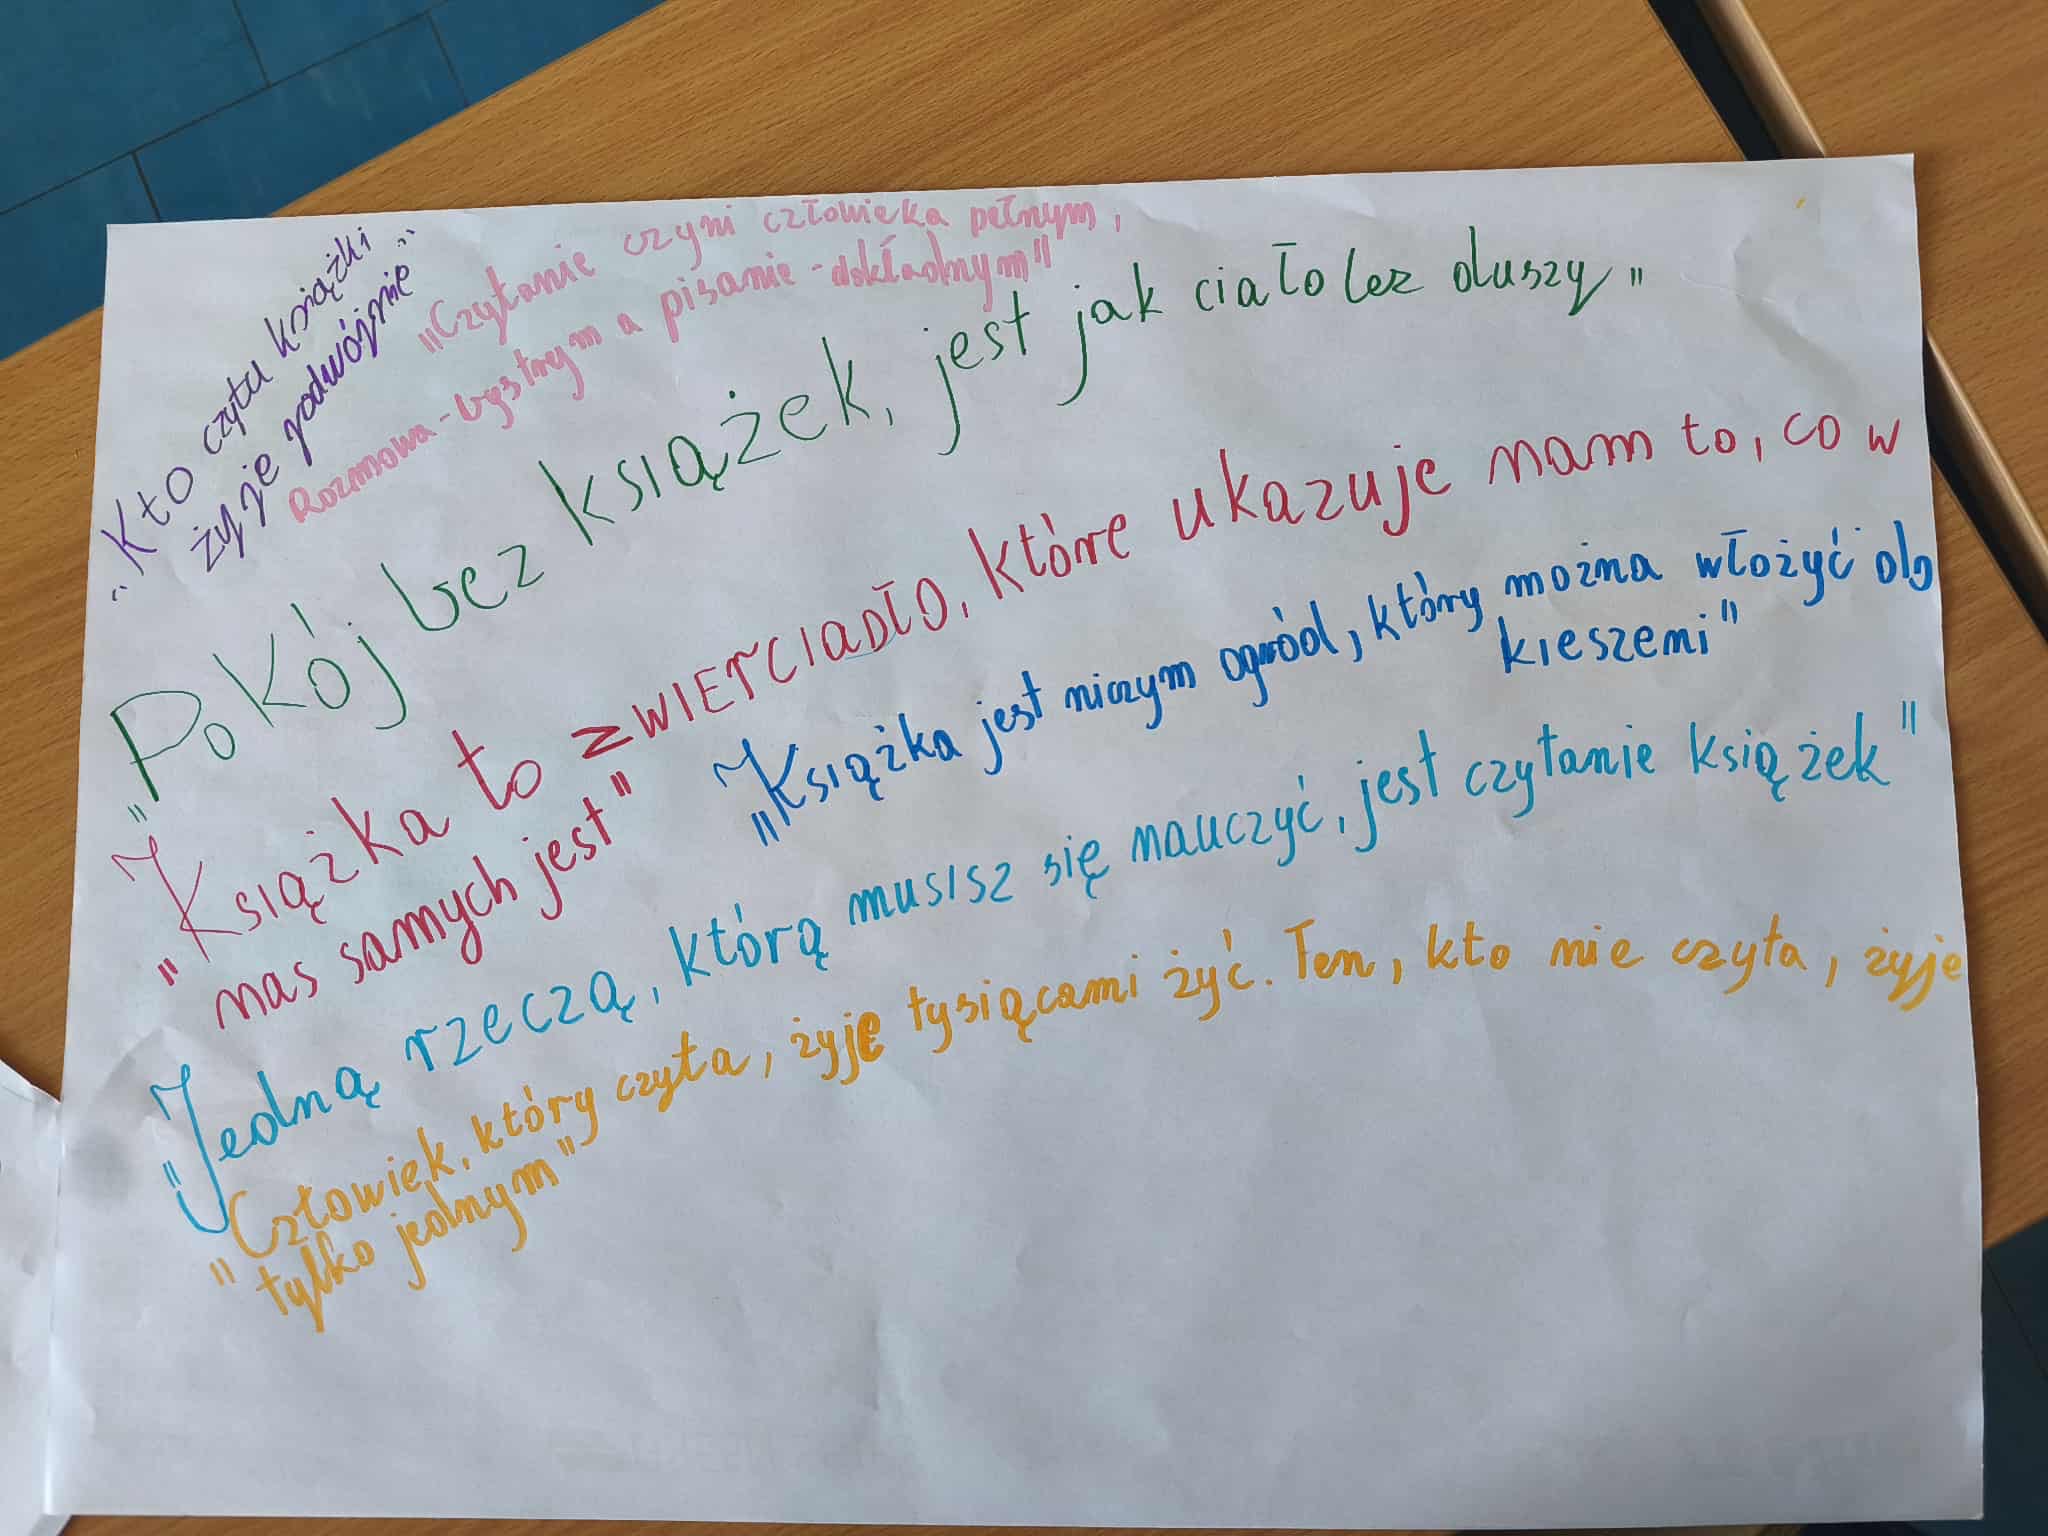 "Kto czyta książki
żyje podwójnie"
"Czytanie czyni człowieka pełnym,
Rozmowa - bystrym a pisanie - dokładnym"
"Pokój bez książek, jest jak ciało bez duszy"
"Książka to zwierciadło, które ukazuje nam to, co w
nas samych jest"
"Książka jest niczym ogród, który można włożyć do
kieszeni"
"Jedną rzeczą, którą musisz się nauczyć, jest czytanie książek"
"Człowiek, który czyta, żyje tysiącami żyć. Ten, kto nie czyta, żyje
tylko jednym"